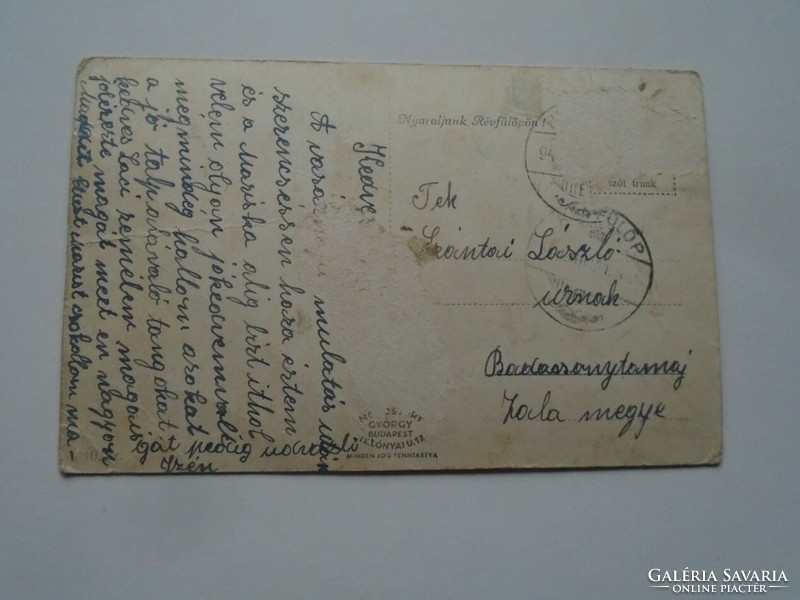 Kedves
A vasár mulatás után
szerencséssen haza értem
és a Mariska alig birt ithol
velem olyan jókedvem volt
mégmindég hallom azokat
a jó talpaláváló tangokat
kedves Laci remélem magais
jólérezte magát mert én nagyon
Mariskát csokolom ma-
gát pedig üdvözli
Nyaraljunk Révfülöpön!
szót írunk
FÜLÖP
Tek
Szántai László
urnak
Badacsonytomaj
Zala megye
GYÖRGY
BUDAPEST
MINDEN JOG FENNTARTVA
GALÉRIA SAVARIA
ONLINE PIACTÉR